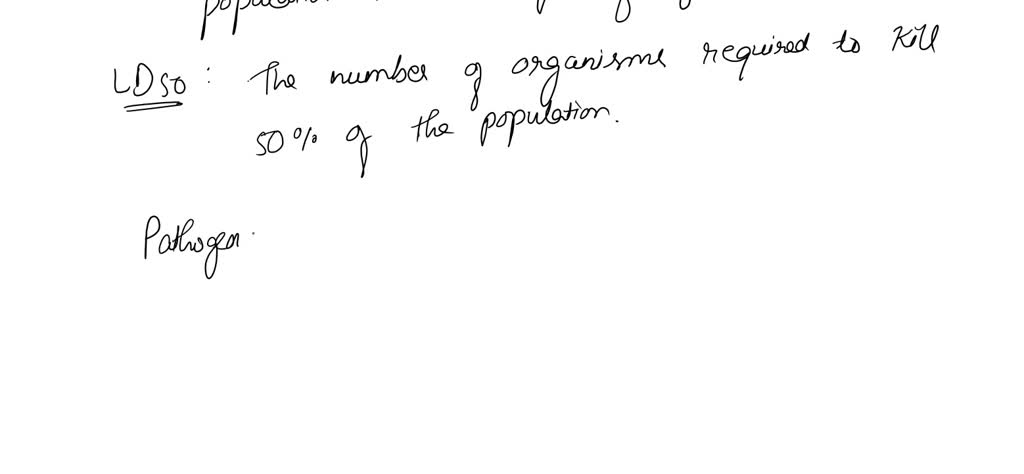 LD50 : The number of organisms required to kill
50% of the population.
Pathogen